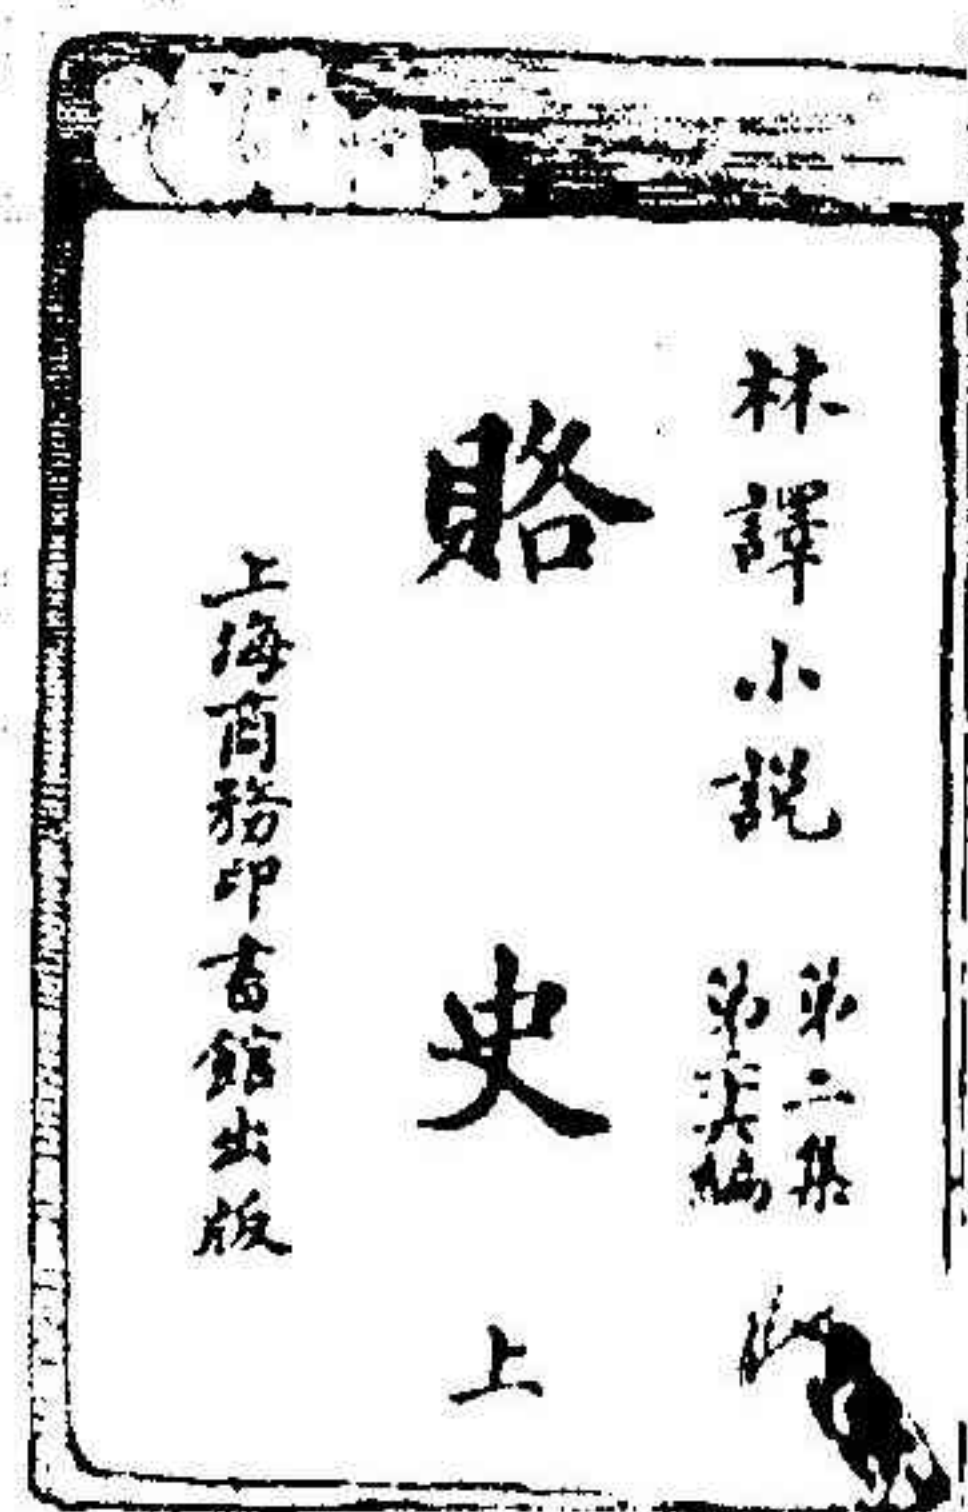 林譯小説
第二集
第十六編
賂史
上
上海商務印書館出版